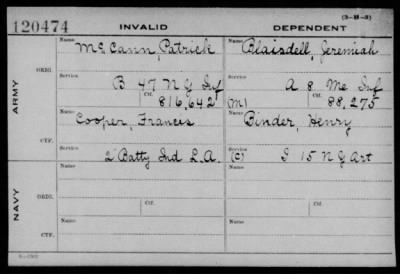 (3-H-3)
120474 INVALID DEPENDENT
ARMY
ORIG.
Name McCann, Patrick
Service B 47 N Y Inf
Ctf. 816,642
Name Blaisdell, Jeremiah
Service A 8 Me Inf
(M) Ctf. 88,275
CTF.
Name Cooper, Frances
Service 2" Batty Ind L. A.
Name Binder, Henry
Service (C) I 15 N Y Art
NAVY
ORIG.
Name
Ctf.
Name
Ctf.
CTF.
Name
Name